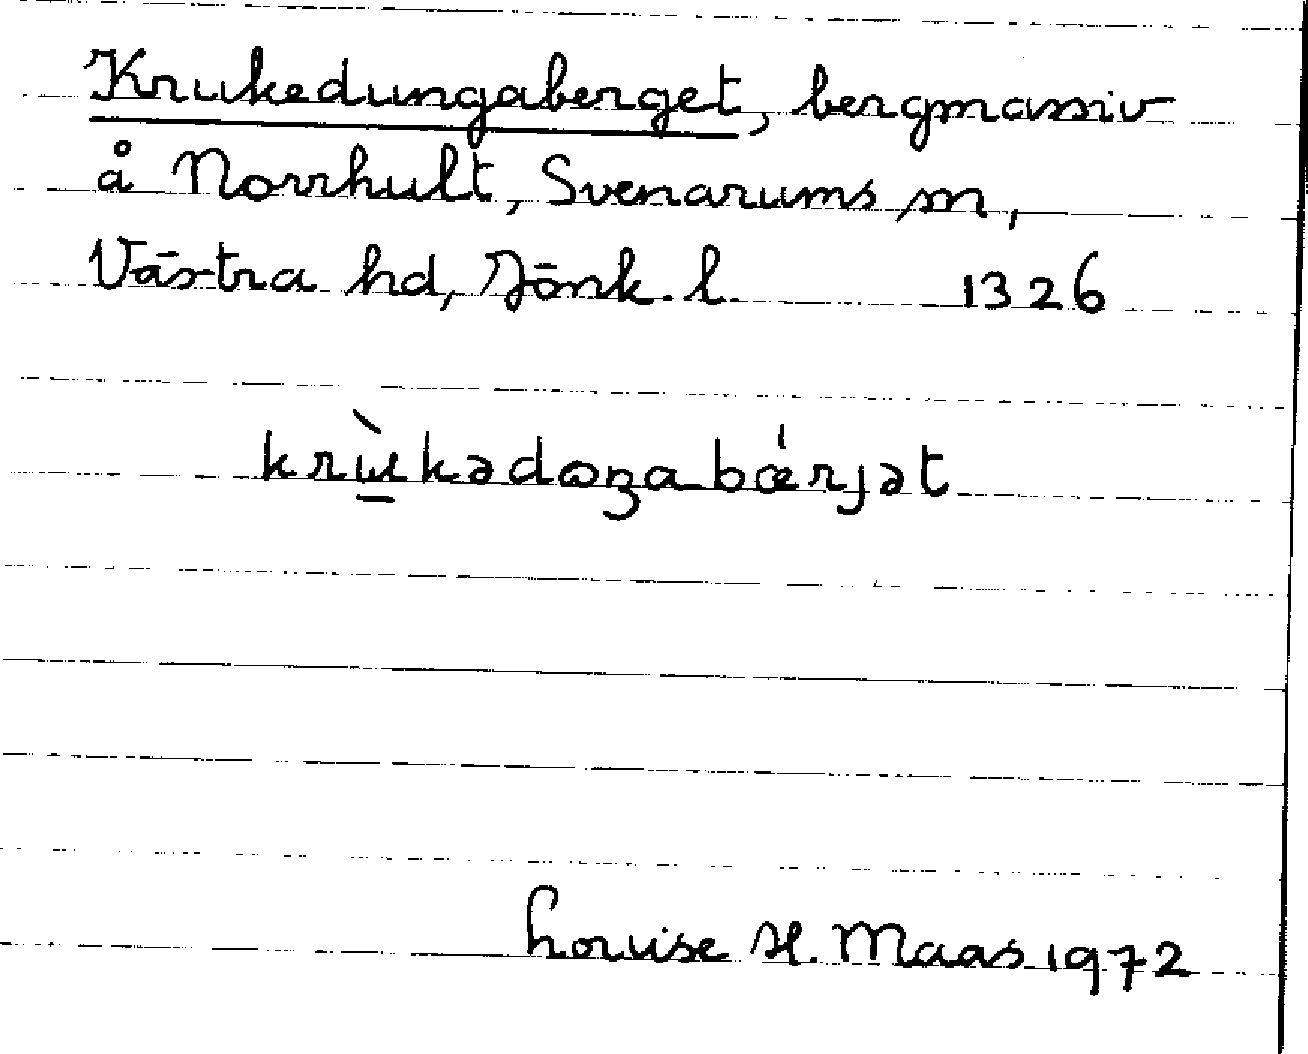 Krukedungaberget, bergmassiv
å Norrhult, Svenarums sn,
Västra hd, Jönk. l. 1326
krɯ̀kədɷŋabǽrjət
Louise H. Maas 1972